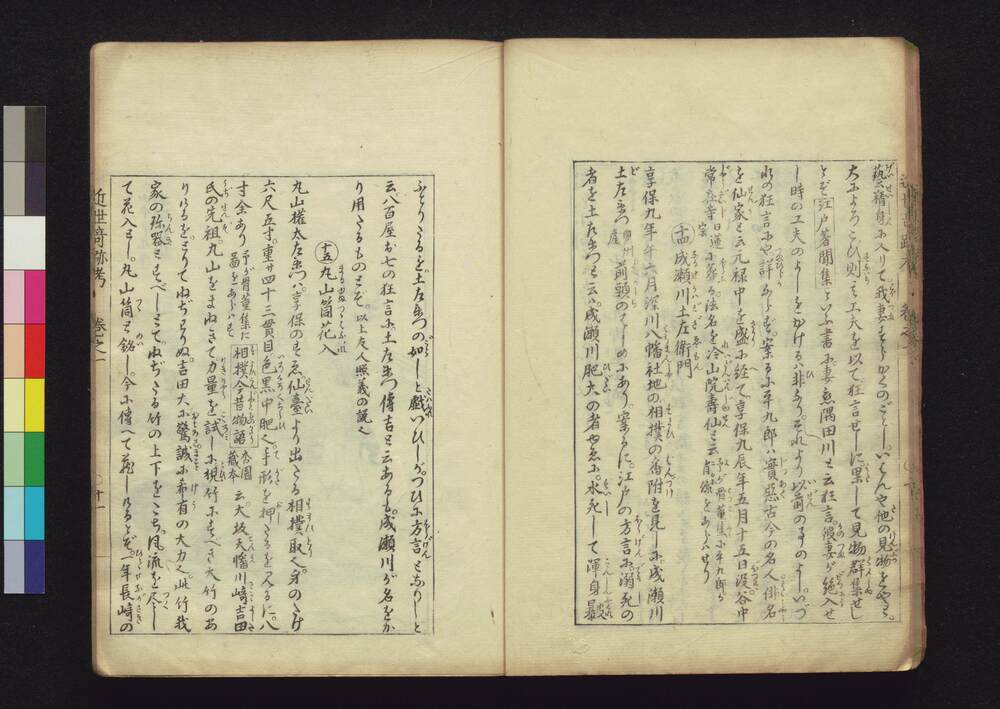 藝精身に入りて我妻をもかくのごとし。いはんや他の見物をや。
大によろこび則其工夫を以て狂言せしに果して見物群集せし
とぞ江戸著聞集といふ書に妻恋隅田川と云狂言。彼妻が絶入せ
し時の工夫のよしをかけるハ非なり。それより以前の事のよし。いづ
れの狂言にや詳ならず。案るに平九郎ハ実悪古今の名人俳名
を仙家と云元禄中を盛に経て享保九辰年五月十五日没谷中
常在寺日蓮宗に葬る法名を冷山院寿仙と云予が骨董集に平九郎が肖像をあらハせり
十四 成瀬川土左衛門
享保九年午六月深川八幡社地の相撲の番附を見しに。成瀬川
土左衛門奥州産前頭のはじめにあり。案るに。江戸の方言に溺死の
者を土左衛門と云ハ。成瀬川肥大の者ゆゑに。水死して渾身暴皮
ふとりたるを土左衛門の如しと戯いひしが。つひに方言となりしと
云八百屋お七の狂言に。土左衛門傳吉と云あるも。成瀬川が名をか
り用たるものとぞ。以上友人照義の説也
十五 丸山筒花入
丸山権太左衛門ハ。享保のすゑ。仙臺より出たる相撲取也。身のたけ
六尺五寸。重サ四十三貫目色黒中肥也手形を押たるを見るに。八
寸余あり予が骨董集に圖をあらハす相撲今昔物語杏園蔵本云大坂天幡川崎吉田
氏の先祖丸山をまねきて力量を試しに現竹にすべき大竹のあ
りけるをとりてねぢちりぬ。吉田大に驚誠に希有の大力也。此竹我
家の珎器とすべしとて。ねぢたる竹の上下をたち。風流を尽し
て花入とし。丸山筒と銘し。今に傳へて蔵しけるとぞ。一年長崎の
近世奇跡考 巻之一